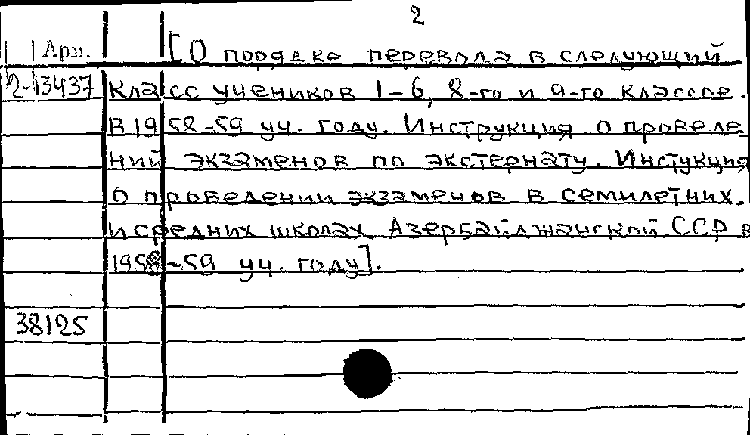 2
Арм. [О порядке перевода в следующий
2-13437 класс учеников 1-6, 8-го и 9-го классов.
В 1958-59 уч. году. Инструкция о проведе
ний экзаменов по экстернату. Инстукция
о проведении экзаменов в семилетних.
и средних школах Азербайджанской ССР в
1958-59 уч. году].
38125